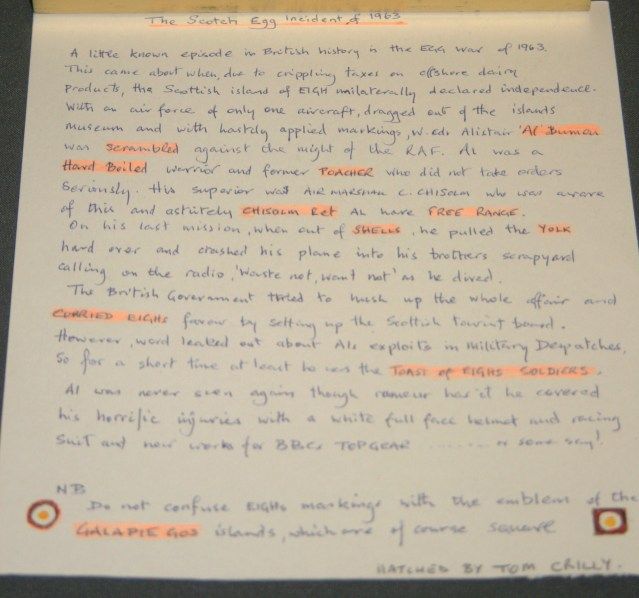 The Scotch Egg Incident of 1963
A little known episode in British history is the EGG war of 1963.
This came about when, due to crippling taxes on offshore dairy
products, the Scottish island of EIGH unilaterally declared independence.
With an air force of only one aircraft, dragged out of the islands
museum and with hastily applied markings, W.cdr Alistair 'Al' Bumen
was scrambled against the might of the RAF. AL was a
Hard Boiled warrior and former POACHER who did not take orders
seriously. His superior was AIR MARSHAL C. CHISOLM who was aware
of this and astutely CHISOLM let AL have FREE RANGE.
On his last mission, when out of SHELLS, he pulled the YOLK
hard over and crashed his plane into his brothers scrapyard
calling on the radio, 'Waste not, want not' as he dived.
The British Government tried to hush up the whole affair and
CURRIED EIGHS favour by setting up the Scottish tourist board.
However, word leaked out about Als exploits in Military Despatches,
so for a short time at least he was the TOAST OF EIGHS SOLDIERS.
Al was never seen again though rumour has it he covered
his horrific injuries with a white full face helmet and racing
suit and now works for BBCs TOPGEAR ......... or some say!
NB
Do not confuse EIGHs markings with the emblem of the
GALAPIE GOS islands, which are of course square
HATCHED BY TOM CRILLY.